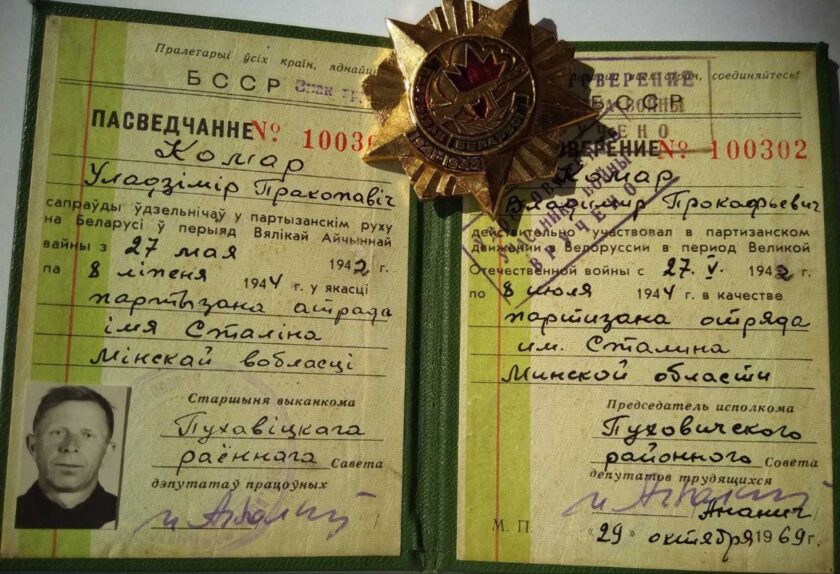 Пралетарыі ўсіх краін, яднайц
БССР
ПАСВЕДЧАННЕ № 1003
Комар
Уладзімір Пракопавіч
сапраўды ўдзельнічаў у партызанскім руху
на Беларусі ў перыяд Вялікай Айчыннай
вайны з 27 мая 1942 г.
па 8 ліпеня 1944 г. у якасці
партызана атрада
імя Сталіна
Мінскай вобласці
Старшыня выканкома
Пухавіцкага
раённага Савета
дэпутатаў працоўных
всех стран, соединяйтесь!
БССР
ВЕРЕНИЕ № 100302
Комар
Владимир Прокофьевич
действительно участвовал в партизанском
движении в Белоруссии в период Великой
Отечественной войны с 27.V. 1942 г.
по 8 июля 1944 г. в качестве
партизана отряда
им. Сталина
Минской области
Председатель исполкома
Пуховичского
районного Совета
депутатов трудящихся
Ананич
М. П. «29» октября 1969 г.
ВОЙНЫ
ВРУЧЕНО